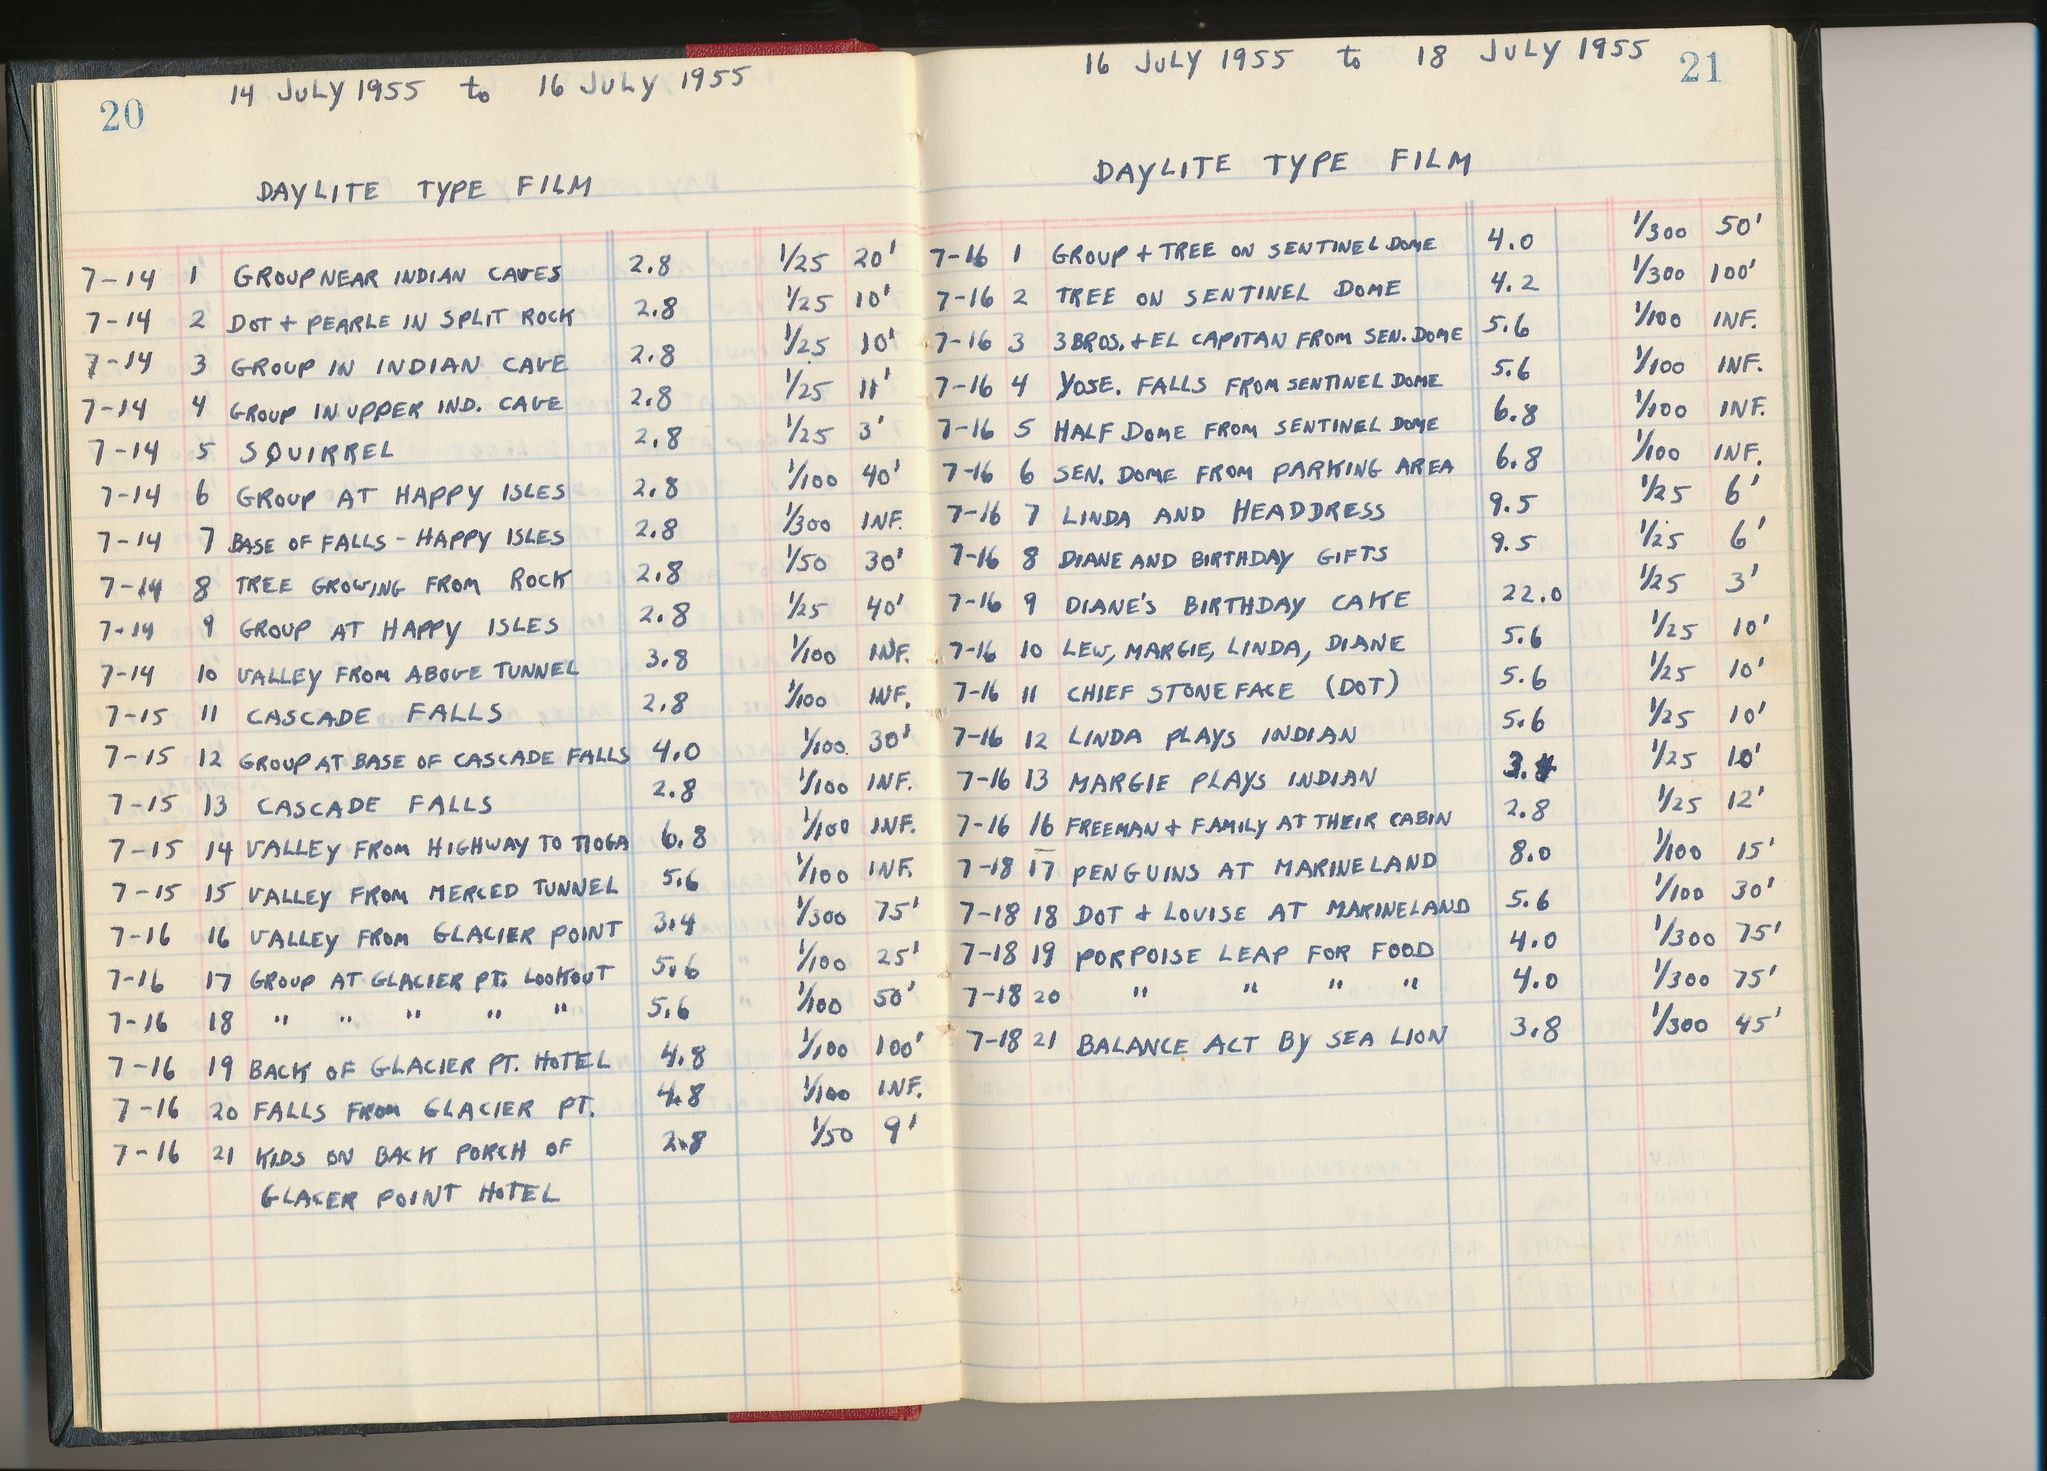 20
14 JULY 1955 to 16 JULY 1955
DAYLITE TYPE FILM
7-14 1 GROUP NEAR INDIAN CAVES 2.8 1/25 20'
7-14 2 DOT + PEARLE IN SPLIT ROCK 2.8 1/25 10'
7-14 3 GROUP IN INDIAN CAVE 2.8 1/25 10'
7-14 4 GROUP IN UPPER IND. CAVE 2.8 1/25 11'
7-14 5 SQUIRREL 2.8 1/25 3'
7-14 6 GROUP AT HAPPY ISLES 2.8 1/100 40'
7-14 7 BASE OF FALLS - HAPPY ISLES 2.8 1/300 INF.
7-14 8 TREE GROWING FROM ROCK 2.8 1/50 30'
7-14 9 GROUP AT HAPPY ISLES 2.8 1/25 40'
7-14 10 VALLEY FROM ABOVE TUNNEL 3.8 1/100 INF.
7-15 11 CASCADE FALLS 2.8 1/100 INF.
7-15 12 GROUP AT BASE OF CASCADE FALLS 4.0 1/100 30'
7-15 13 CASCADE FALLS 2.8 1/100 INF.
7-15 14 VALLEY FROM HIGHWAY TO TIOGA 6.8 1/100 INF.
7-15 15 VALLEY FROM MERCED TUNNEL 5.6 1/100 INF.
7-16 16 VALLEY FROM GLACIER POINT 3.4 1/300 75'
7-16 17 GROUP AT GLACIER PT. LOOKOUT 5.6 1/100 25'
7-16 18 " " " " " 5.6 1/100 50'
7-16 19 BACK OF GLACIER PT. HOTEL 4.8 1/100 100'
7-16 20 FALLS FROM GLACIER PT. 4.8 1/100 INF.
7-16 21 KIDS ON BACK PORCH OF 2.8 1/50 9'
GLACER POINT HOTEL
16 JULY 1955 to 18 JULY 1955
21
DAYLITE TYPE FILM
7-16 1 GROUP + TREE ON SENTINEL DOME 4.0 1/300 50'
7-16 2 TREE ON SENTINEL DOME 4.2 1/300 100'
7-16 3 3 BROS. + EL CAPITAN FROM SEN. DOME 5.6 1/100 INF.
7-16 4 YOSE. FALLS FROM SENTINEL DOME 5.6 1/100 INF.
7-16 5 HALF DOME FROM SENTINEL DOME 6.8 1/100 INF.
7-16 6 SEN. DOME FROM PARKING AREA 6.8 1/100 INF.
7-16 7 LINDA AND HEADDRESS 9.5 1/25 6'
7-16 8 DIANE AND BIRTHDAY GIFTS 9.5 1/25 6'
7-16 9 DIANE'S BIRTHDAY CAKE 22.0 1/25 3'
7-16 10 LEW, MARGIE, LINDA, DIANE 5.6 1/25 10'
7-16 11 CHIEF STONE FACE (DOT) 5.6 1/25 10'
7-16 12 LINDA PLAYS INDIAN 5.6 1/25 10'
7-16 13 MARGIE PLAYS INDIAN 1/25 10'
7-16 16 FREEMAN + FAMILY AT THEIR CABIN 2.8 1/25 12'
7-18 17 PENGUINS AT MARINELAND 8.0 1/100 15'
7-18 18 DOT + LOUISE AT MARINELAND 5.6 1/100 30'
7-18 19 PORPOISE LEAP FOR FOOD 4.0 1/300 75'
7-18 20 " " " " 4.0 1/300 75'
7-18 21 BALANCE ACT BY SEA LION 3.8 1/300 45'